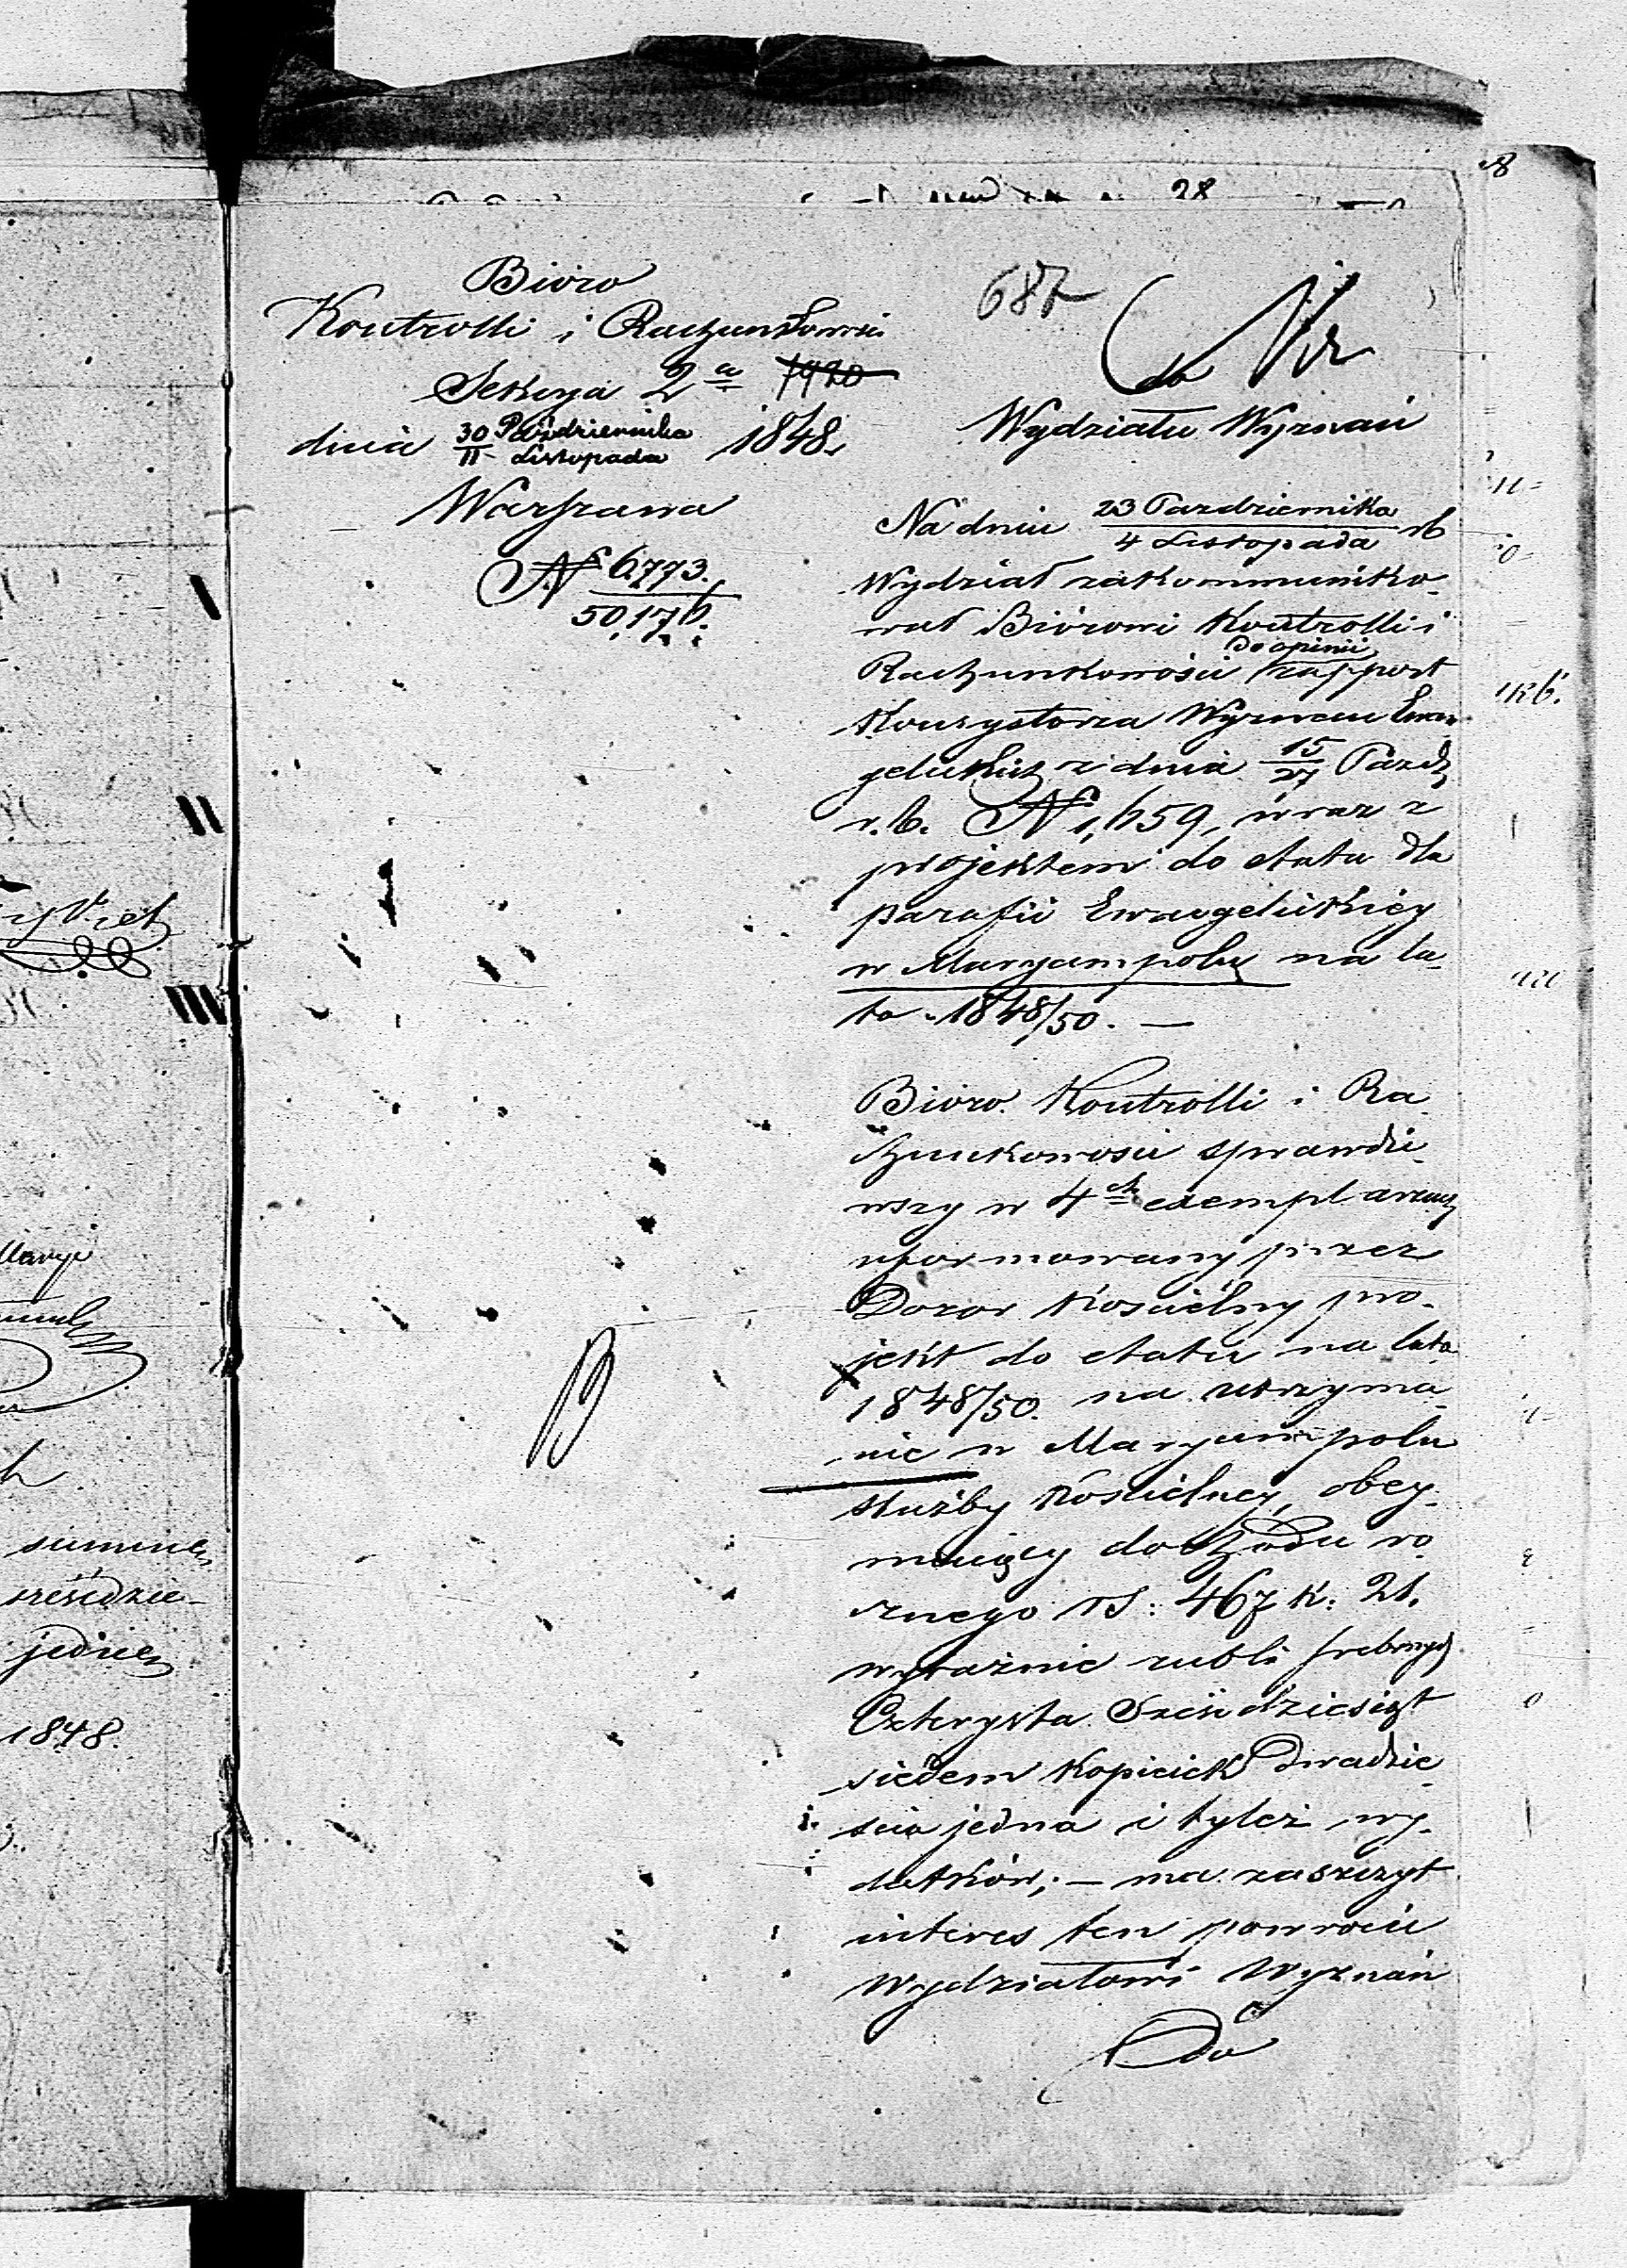 28
Bióro
Kontrolli i Rachunkowości
Sekcya 2a 1920
dnia 30 Października / 11 Listopada 1848.
Warszawa
N 6773. / 50,176.
687
do
Wydziału Wyznań
Na dniu 23 Pazdziernika / 4 Listopada rb
Wydział zakommuniko-
wał Biórowi Kontrolli i
do opinii
Rachunkowości rapport
Konsystorza Wyznań Ewan-
gelickich z dnia 15/27 Pazdz
r.b. N 1,659, wraz z
projektem do etatu dla
parafii Ewangelickiey
w Maryampolu na la-
ta 1848/50. —
Bióro Kontrolli i Ra-
chunkowości sprawdzi-
wszy w 4ch exemplarzach
uformowany przez
Dozor Kościelny pro-
jekt do etatu na lata
1848/50. na utrzyma-
nie w Maryampolu
służby Kościelney, obey-
muiący dochodu ro-
cznego rs: 467 k: 21.
wyraźnie rubli srebrnych
Czterysta Sześćdziesiąt
siedem kopieiek dwadzie-
ścia jedna i tyleż wy-
datków; — ma zaszczyt
interes ten powrócić
Wydziałowi Wyznań
Do
summę
sześćdzie-
jednę
1848.